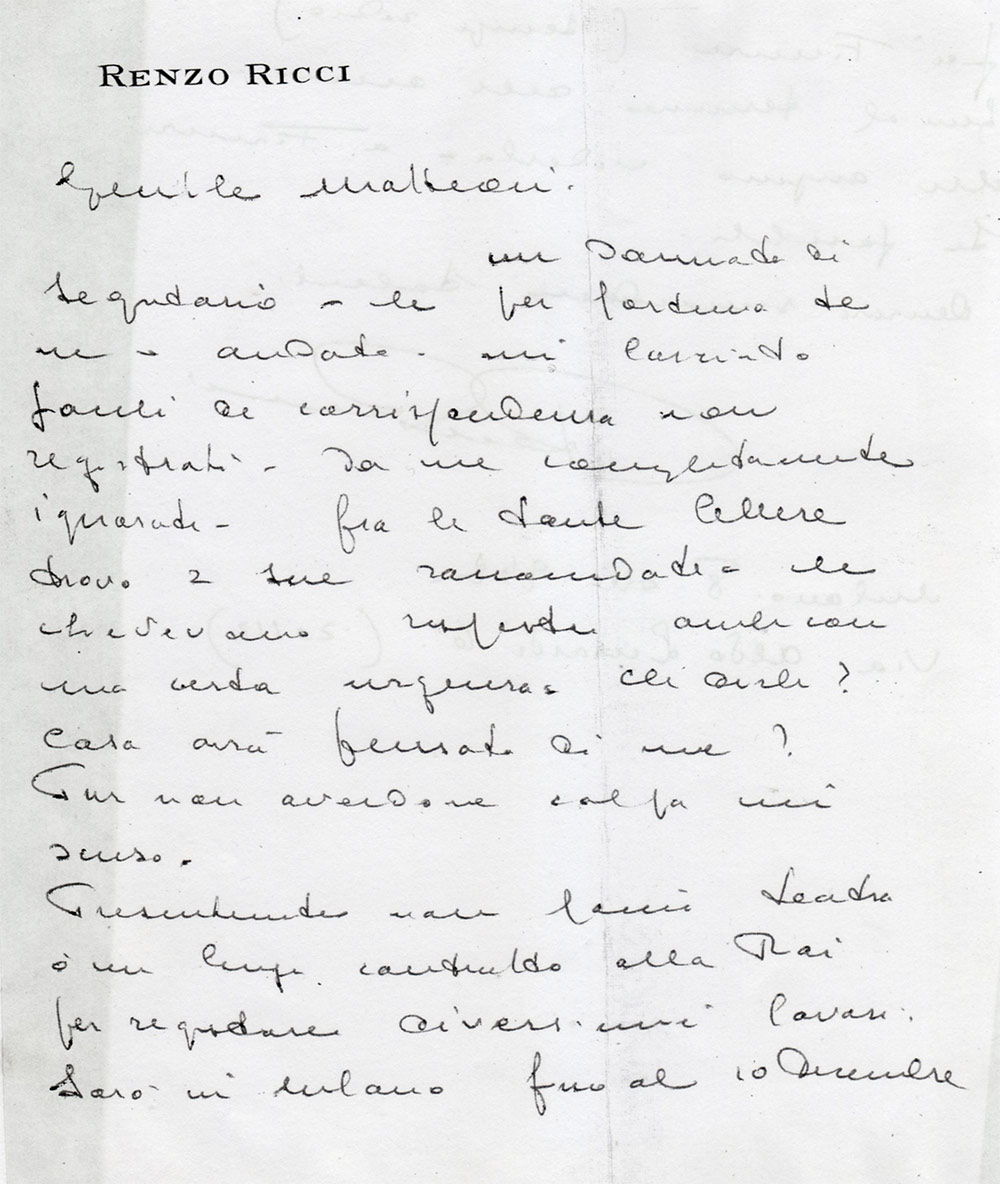 RENZO RICCI
Gentile Matteoni.
un dannato di
segretario - che per fortuna se
ne è andato - mi lasciato
fasci di corrispondenza non
registrati - Da me completamente
ignorati - fra le tante lettere
trovo 2 sue raccomandate - che
chiedevano risposta anche con
una certa urgenza. Che dirle?
Cosa avrà pensato di me?
Pur non avendone colpa mi
scuso.
Presentemente non faccio teatro
ò un lungo contratto alla Rai
per registrare diversissimi lavori.
Sarò in Milano fino al 10 Dicembre